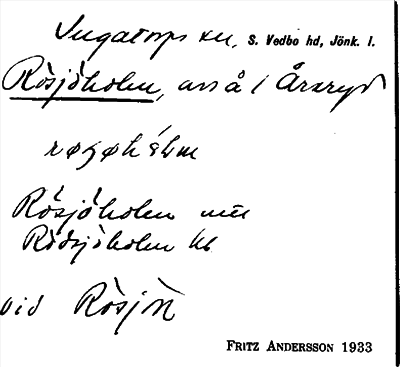 Ingatorps sn, S. Vedbo hd, Jönk. l.
Rösjöholm, avs å 1 Årsryd
Rösjöholm
Rösjöholm
vid Rösjön
FRITZ ANDERSSON 1933